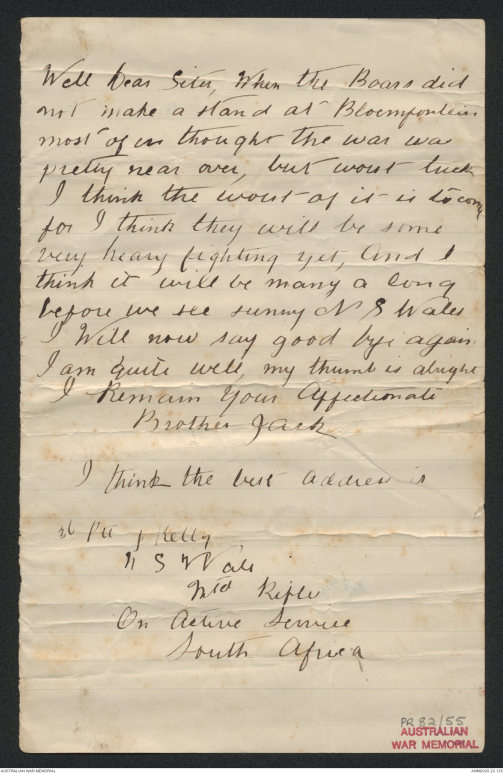 Well Dear Sister, When the Boars did
not make a stand at Bloemfontein
most of us thought the war was
pretty near over, but worst luck
I think the worst of it is to come
for I think they will be some
very heavy fighting yet, And I
think it will be many a long
before we see sunny N S Wales
I Will now say good bye again
I am quite well, my thumb is alright
I Remain Your Affectionate
Brother Jack
I think the best address is
36 Pte J Kelly
N S Wale
Mtd Rifle
On Active Service
South Africa
PR 82/55
AUSTRALIAN
WAR MEMORIAL
AUSTRALIAN WAR MEMORIAL